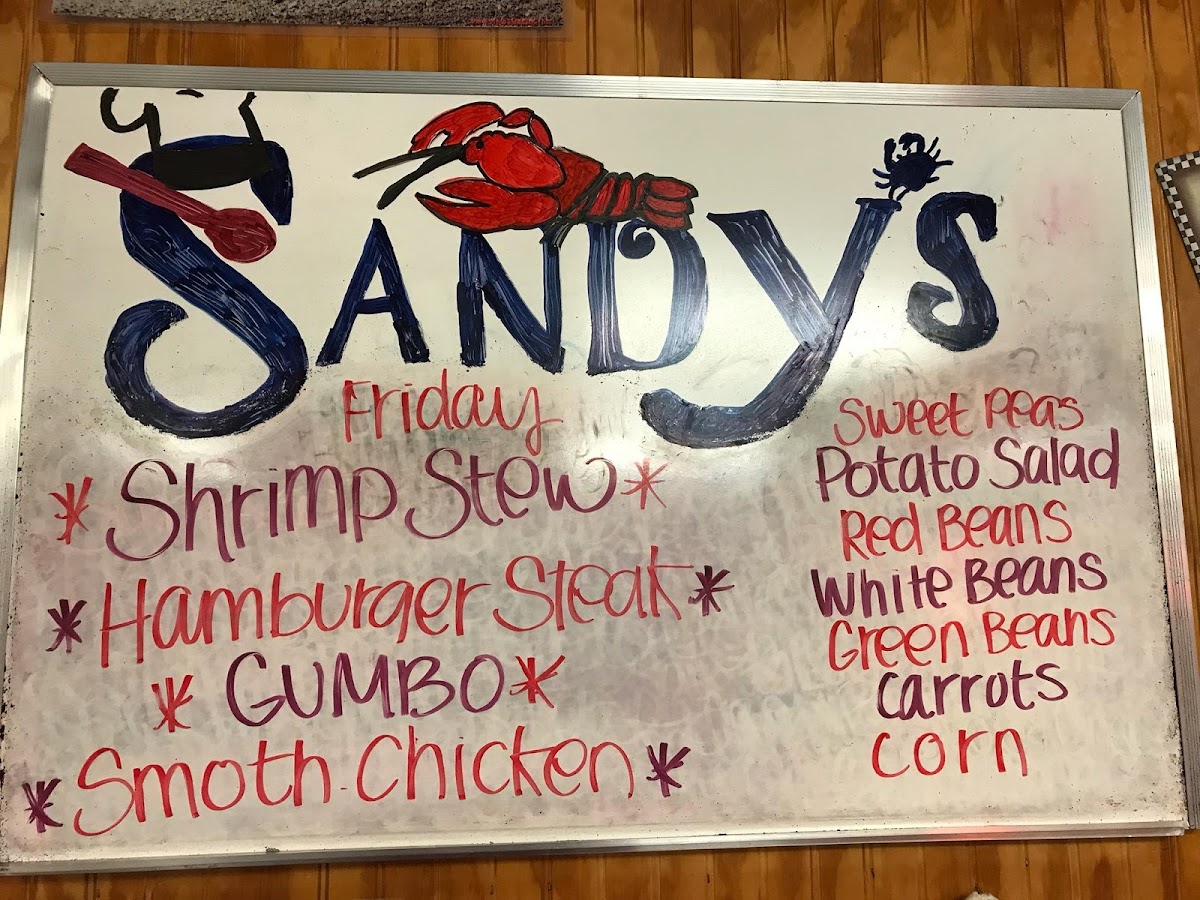 SANDYS
Friday
* Shrimp Stew *
* Hamburger Steak *
* GUMBO *
* Smoth Chicken *
Sweet Peas
Potato Salad
Red Beans
White Beans
Green Beans
Carrots
Corn